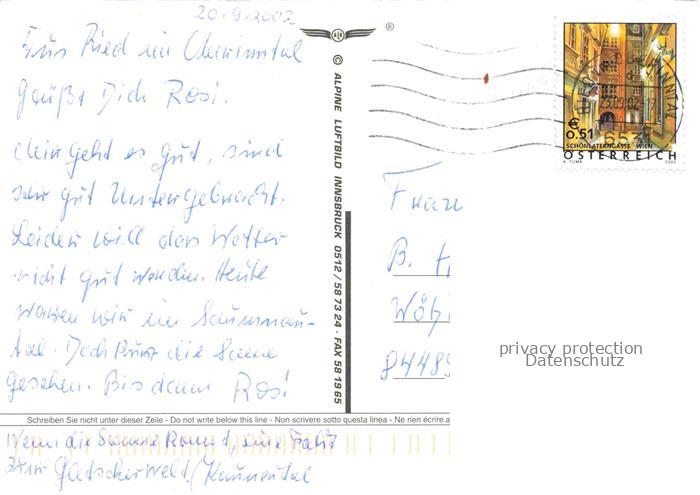 20.9.2002
Aus Ried im Oberinntal
grüßt Dich Rosi.
Mir geht es gut, sind
sehr gut Untergebracht.
Leider will das Wetter
nicht gut werden. Heute
waren wir im Samnaun-
tal. Doch kurz die Sonne
gesehen. Bis dann Rosi
Schreiben Sie nicht unter dieser Zeile - Do not write below this line - Non scrivere sotto questa linea - Ne rien écrire a
Wenn die Sonne kommt, eine Fahrt
zur Gletscherwelt/Kaunertal
© ALPINE LUFTBILD INNSBRUCK 0512 / 58 73 24 · FAX 58 19 65
®
€
0.51
SCHÖNLATERNGASSE WIEN
ÖSTERREICH
A. TUMA 2002
Frau
B. H
84489
privacy protection
Datenschutz